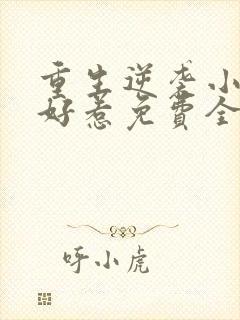 重生逆袭小
好惹免费全
呼小虎